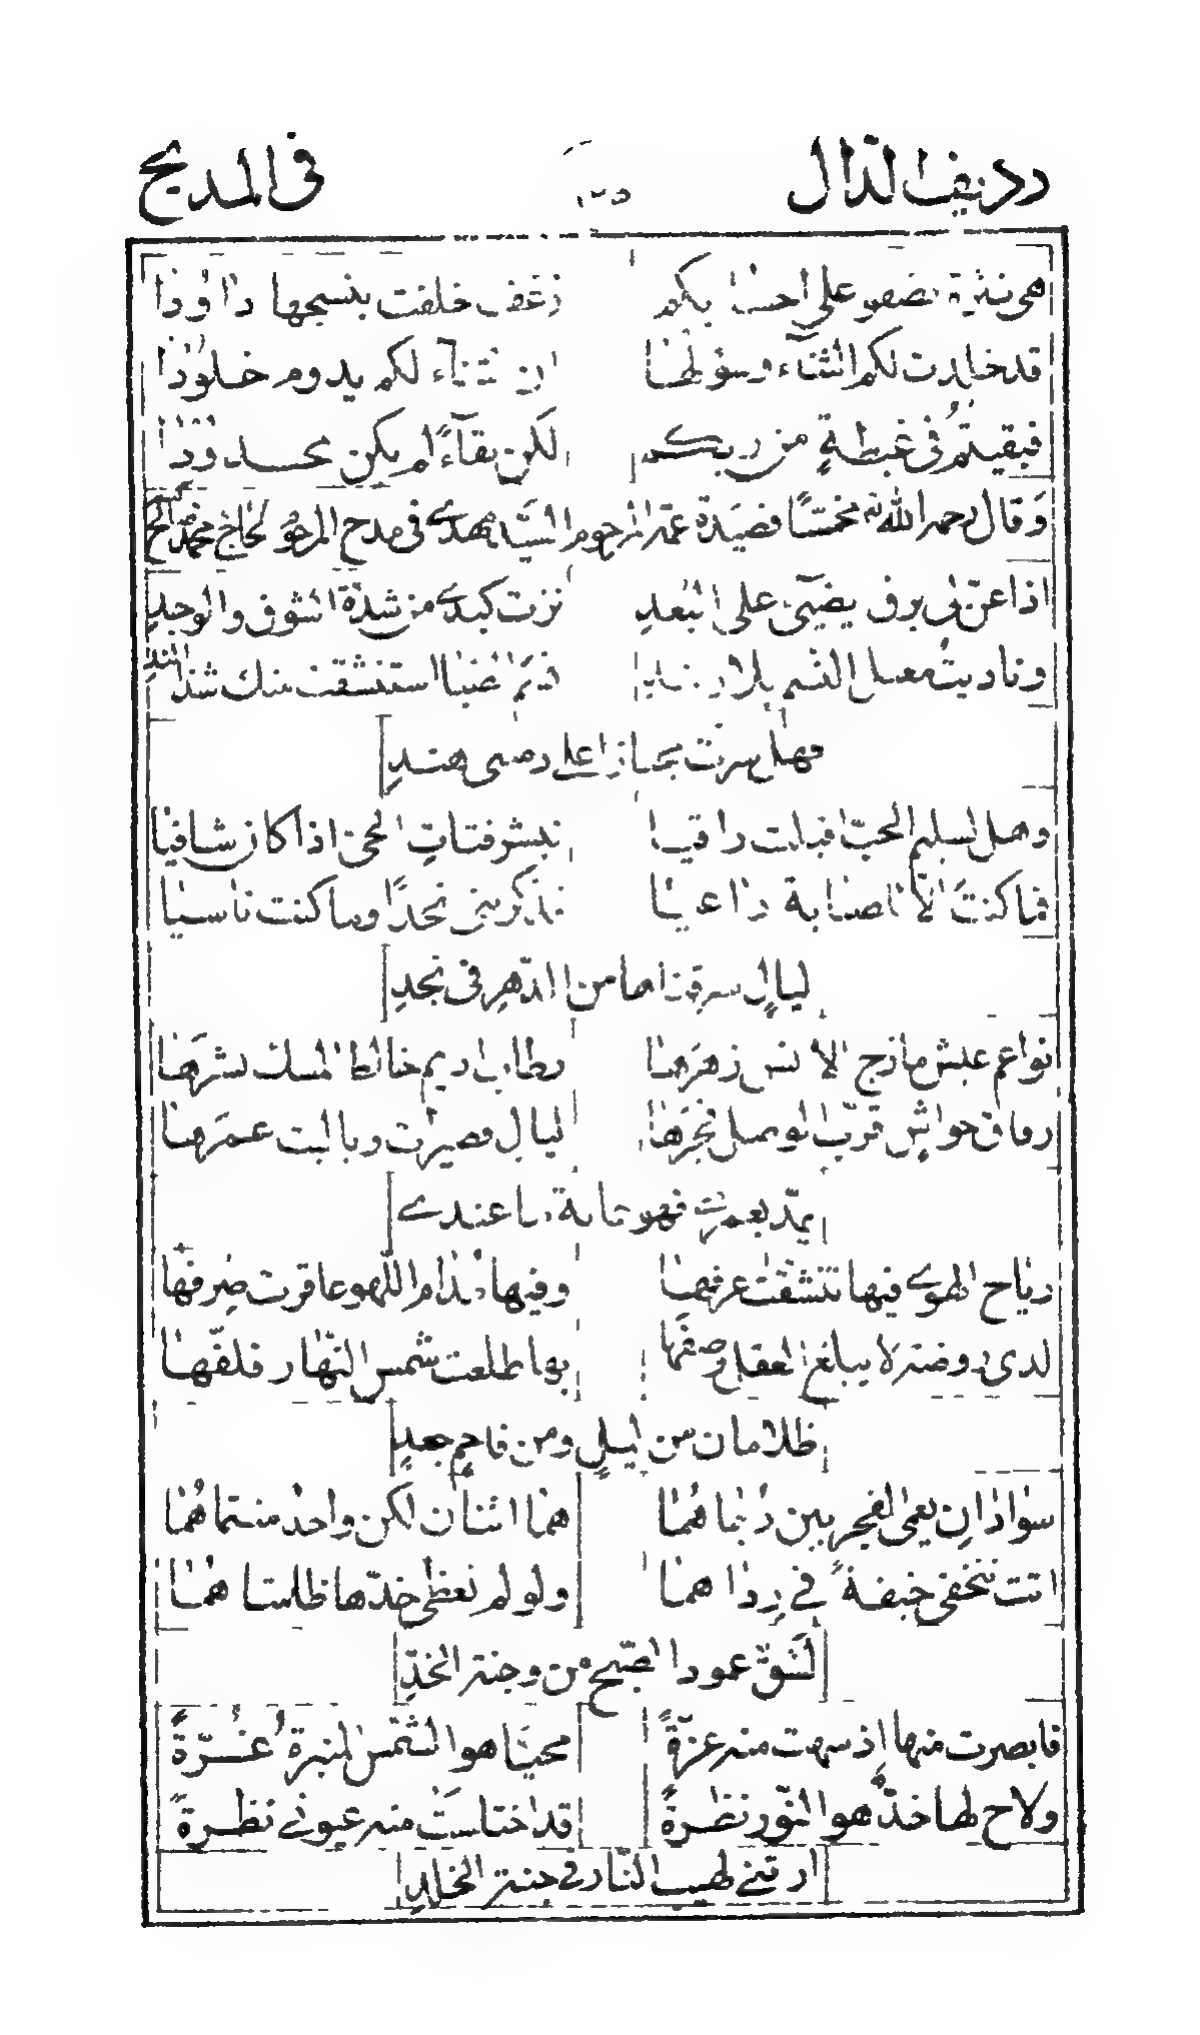 رديف الدّال ١٢٥ في المديح
هي نثرة تضفو على احسابكم زغف خلفت بنسجها داودا
قد خلدت لكم الثناء وسؤلها ان ثناء لكم يدوم خلودا
فبقيتم في غبطةٍ من ربكم لكن بقاءً لم يكن محدودا
وَقال رحمه الله مخمّسًا قصيَدة عمّه المرحوم السيَّد مهدي في مدح المرحوم الحاج محمد صالح
اذا عنّ لي برق يضيئ على البُعدِ نزت كبدي من شدّة الشوق والوجدِ
وناديتُ معتل النسيم بلا رندِ استنشقت منك شذا الندِ
فهل سرت مجتازا على دمنتي هندِ
وهل لسليم الحبّ اقبلت راقيا بنشر فتاتِ الحيّ اذا كان شافيا
فما كنتَ الّا للصبابة داعيا تذكرني نجدًا وما كنت ناسيا
ليالٍ سرقناها من الدّهرِ في نجدِ
نواعم عيش مازج الانس زهرَها رطاب اديم خالط المسك نشرهَا
رقاق حواشٍ قرّب الوصل فجرَها ليالٍ قصيرات ويا ليت عمرَها
يمدّ بعمري فهو غاية ما عندي
رياح الهوي فيها تنشقت عرفها وفيها مُدام اللّهو عاقرت صِرفها
لدى روضة لا يبلغ العقل وصفها بها طلعت شمس النّهار فلفّها
ظلامان من ليلٍ ومن فاحمٍ جعدِ
سوادانِ يعمى الفجر بين دُجاهُما هما اثنان لكن واحد منتماهُما
اتت تتخفى خيفةً في رداهما ولو لم تغطي خدّها ظلمتاهُما
لَشقّ عمود الصّبح من وجنة الخدِّ
فابصرت منها إذ سهت منه غرّةً محيّا هو الشّمس المنيرة غُرّةً
ولاح لها خدٌّ هو النّور نظرةً قد اختلستُ منه عيوني نظرةً
ارتني لهيب النّار في جنة الخلدِ